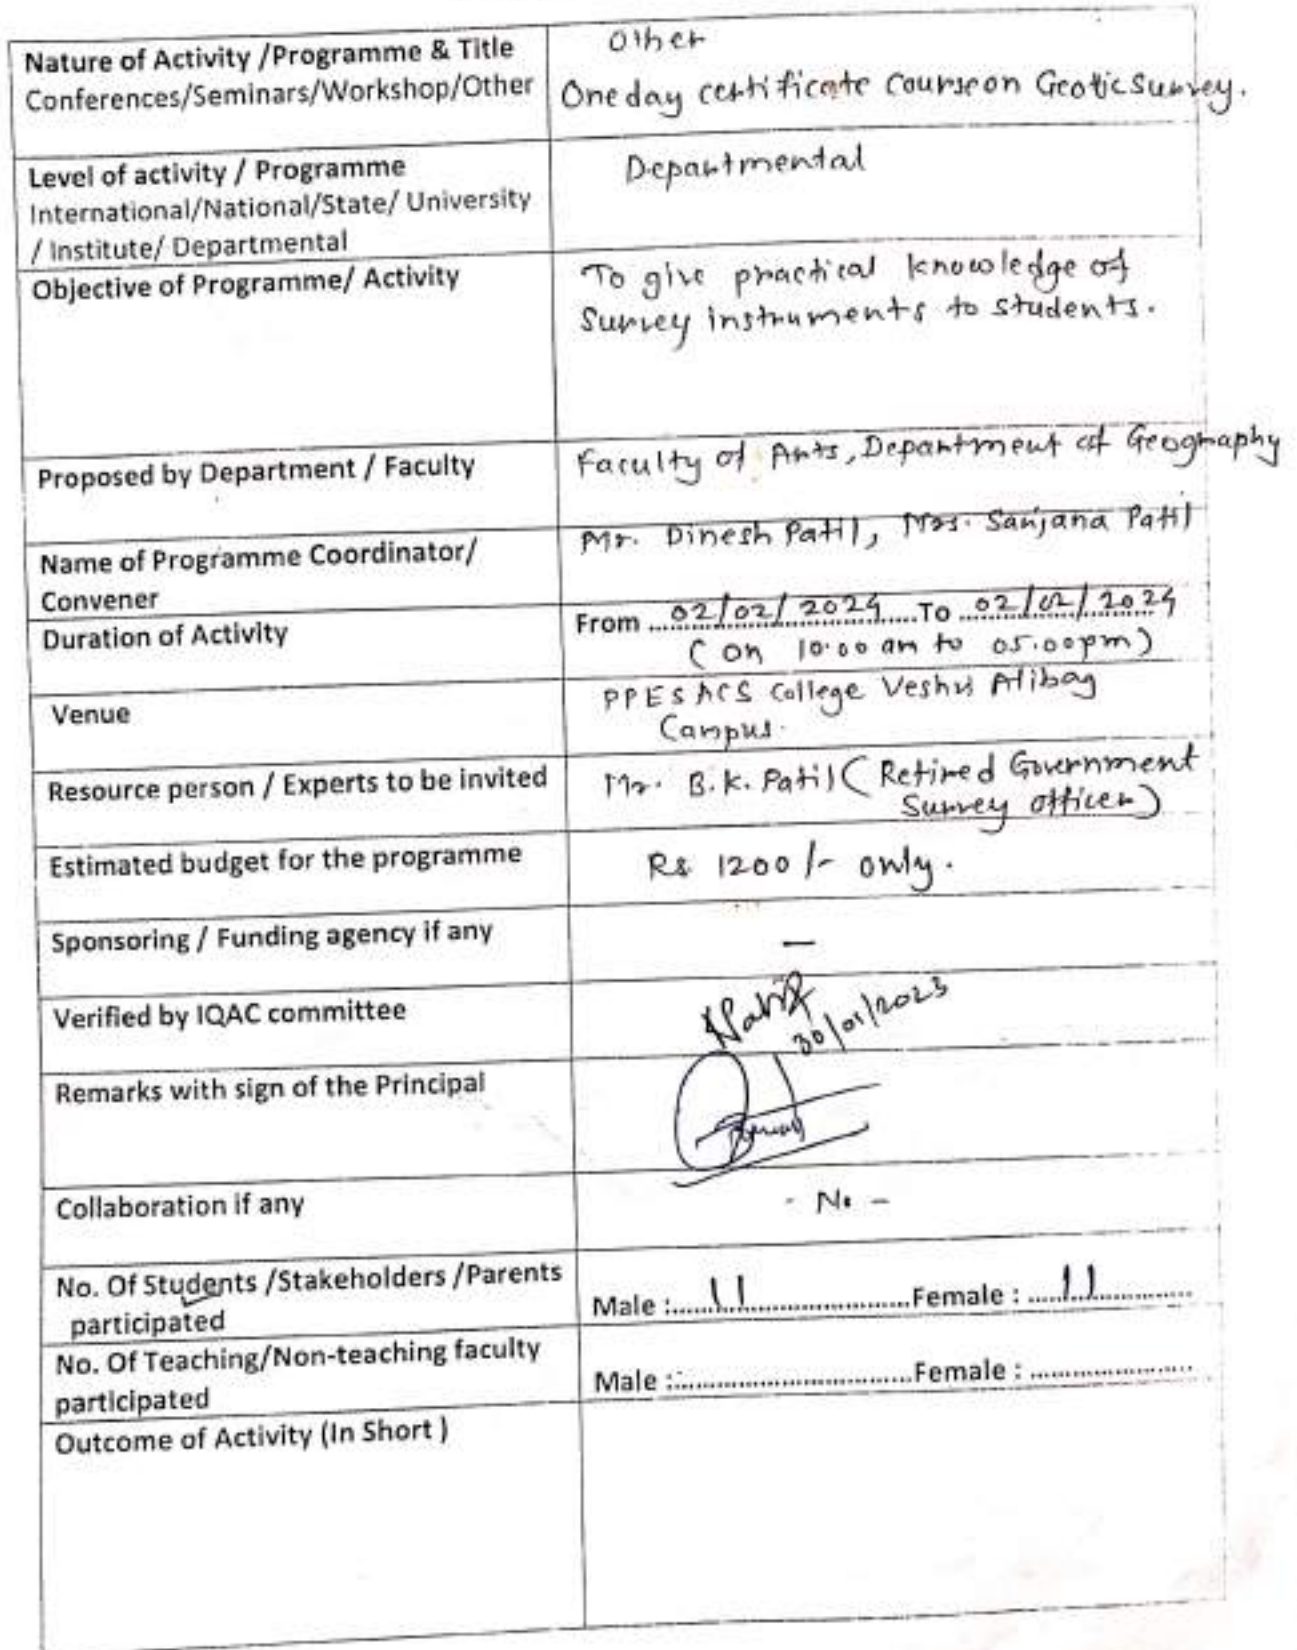 Nature of Activity /Programme & Title
Conferences/Seminars/Workshop/Other
Other
One day certificate Course on Geotic Survey.
Level of activity / Programme
International/National/State/ University
/ Institute/ Departmental
Departmental
Objective of Programme/ Activity
To give practical knowledge of
Survey instruments to students.
Proposed by Department / Faculty
Faculty of Arts, Department of Geography
Name of Programme Coordinator/
Convener
Mr. Dinesh Patil, Mrs. Sanjana Patil
Duration of Activity
From ...02/02/2024...To ...02/02/2024
(on 10.00 am to 05.00pm)
Venue
PPEs ACS College Veshvi Alibag
Campus.
Resource person / Experts to be invited
Mr. B.K. Patil (Retired Government
Survey officer)
Estimated budget for the programme
Rs 1200/- only.
Sponsoring / Funding agency if any
—
Verified by IQAC committee
30/01/2023
Remarks with sign of the Principal
Collaboration if any
- No -
No. Of Students /Stakeholders /Parents
participated
Male :......11......Female : ......11......
No. Of Teaching/Non-teaching faculty
participated
Male :............Female : ............
Outcome of Activity (In Short )